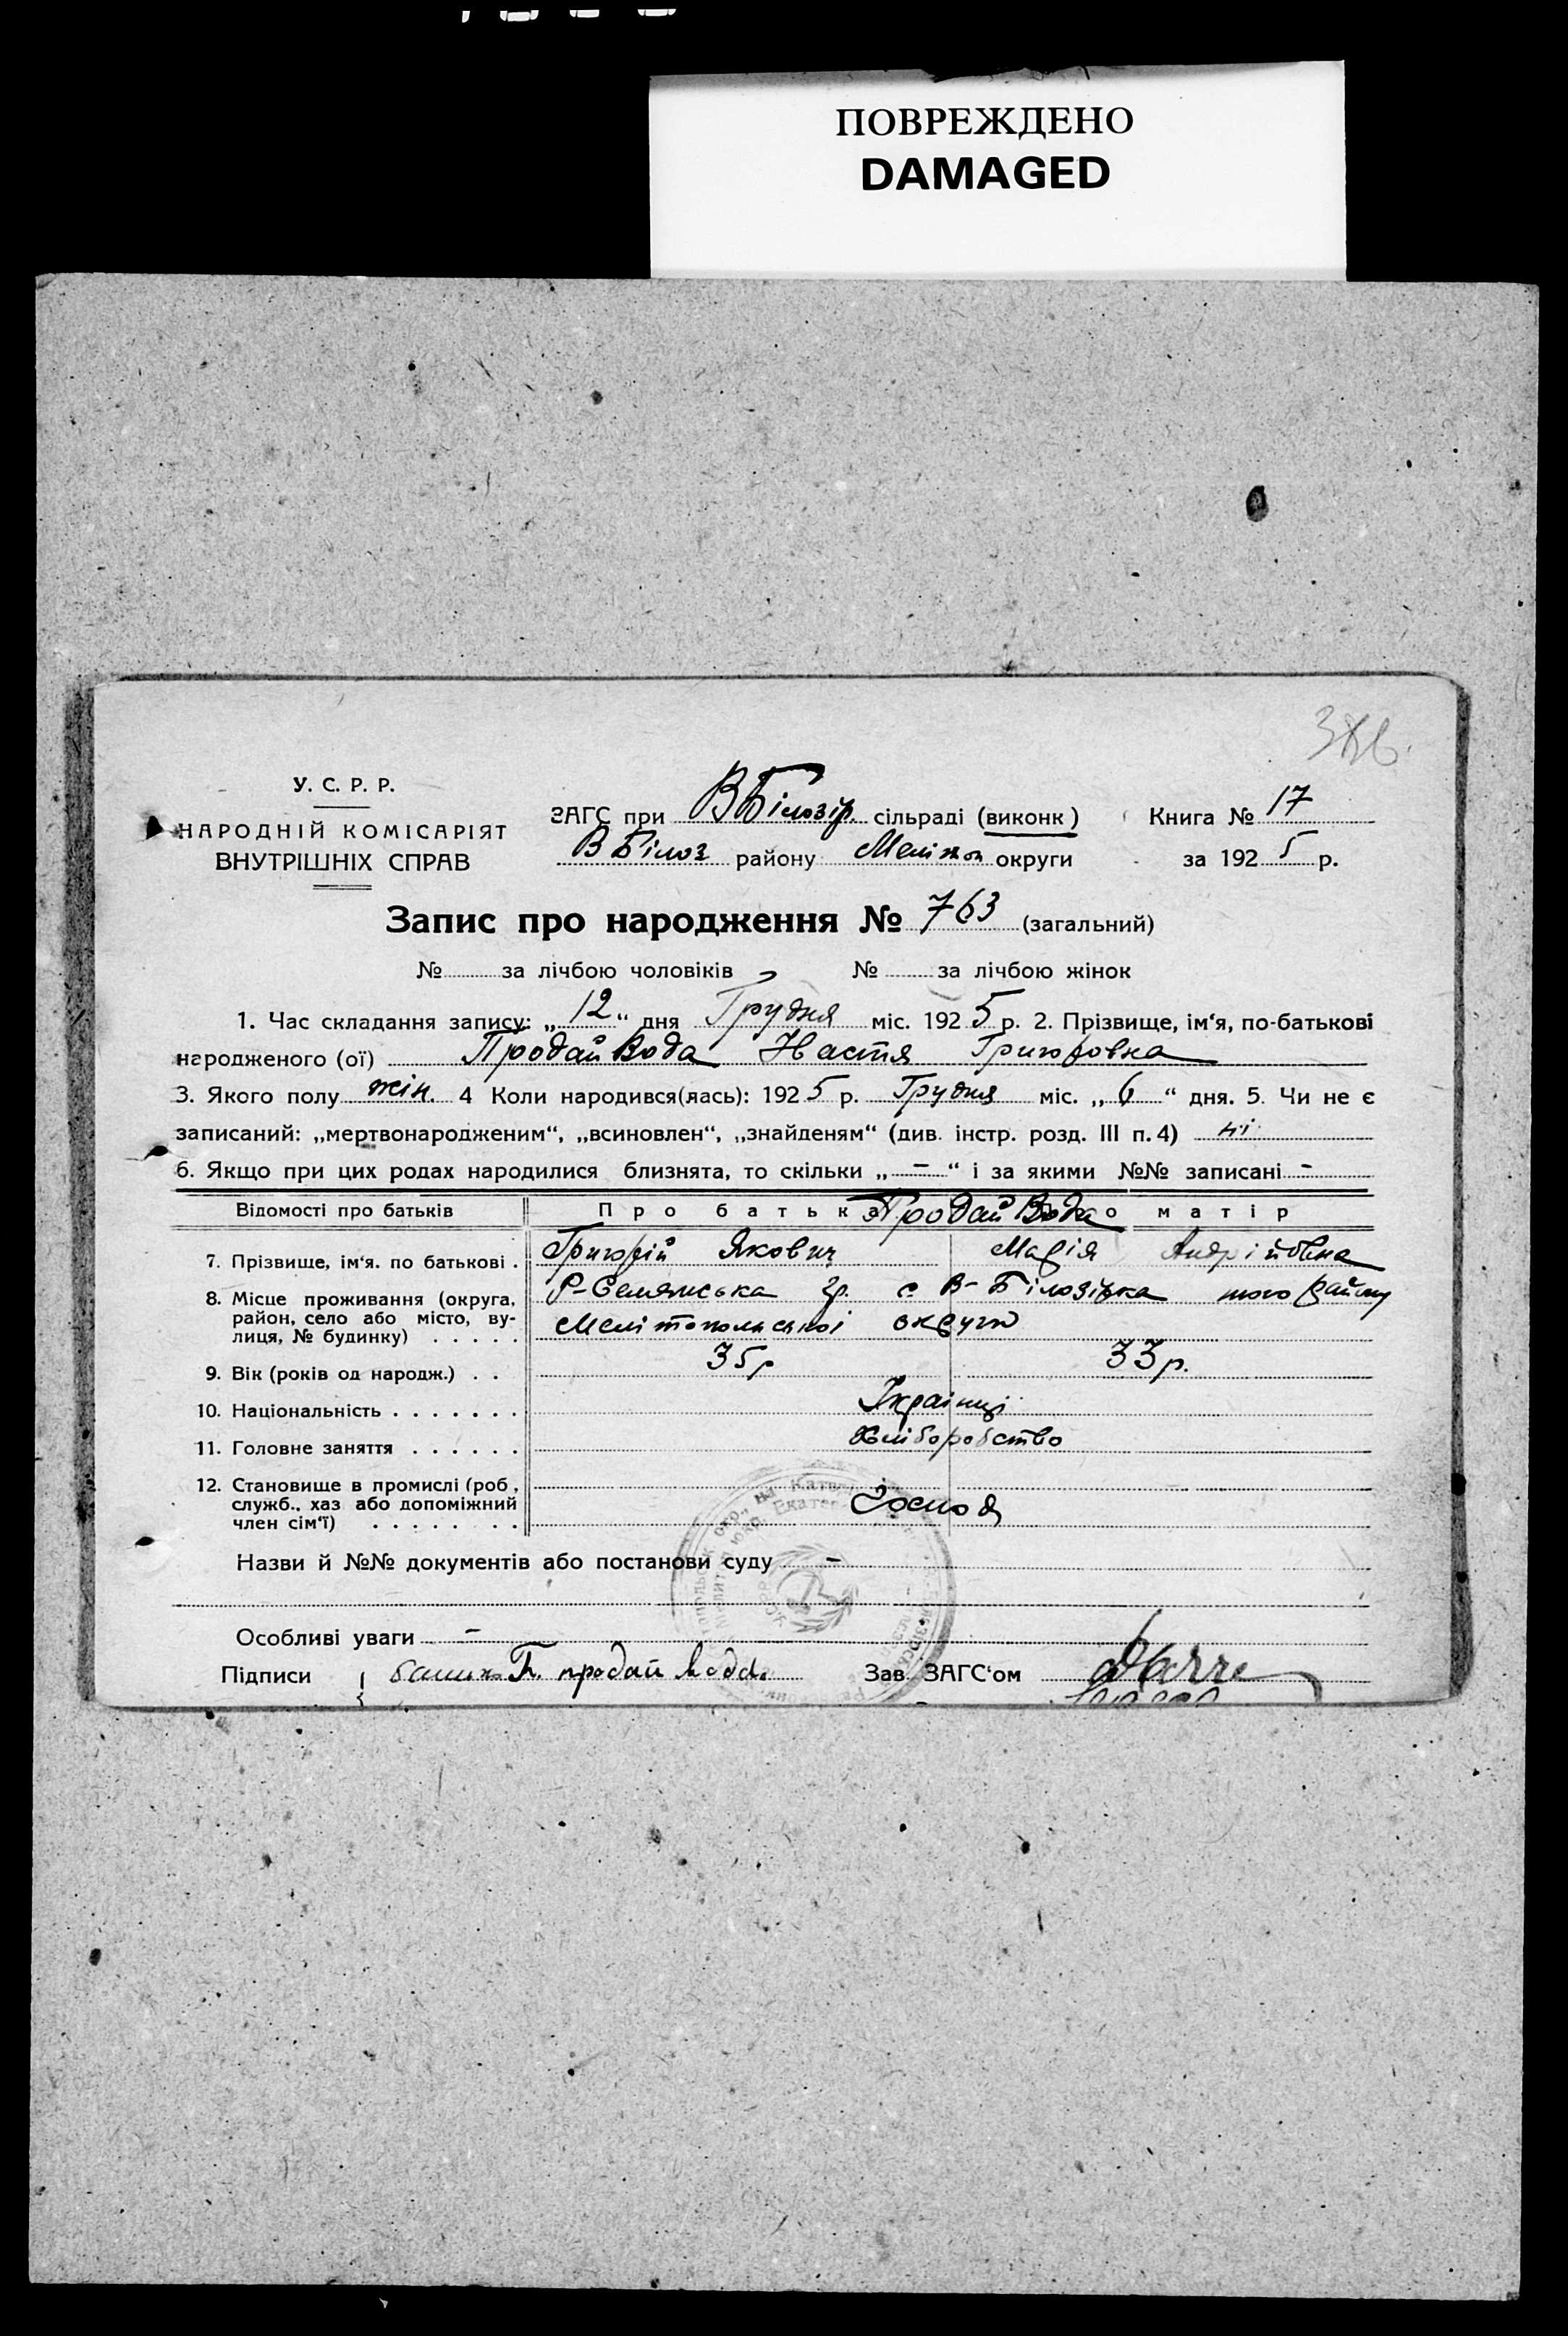 ПОВРЕЖДЕНО
DAMAGED
У. С. Р. Р.
НАРОДНІЙ КОМІСАРІЯТ
ВНУТРІШНІХ СПРАВ
ЗАГС при ВБілозір. сільраді (виконк)
В Біλоз району Мелітоп округи
Книга № 17
за 1925 р.
Запис про народження № 763 (загальний)
№ за лічбою чоловіків № за лічбою жінок
1. Час складання запису: „12“ дня Грудня міс. 1925 р. 2. Прізвище, ім‘я, по-батькові
народженого (ої) Продай Вода Настя Григоровна
3. Якого полу жін. 4 Коли народився(лась): 1925 р. Грудня міс. „6“ дня. 5. Чи не є
записаний: „мертвонародженим“, „всиновлен“, „знайденям“ (див. інстр. розд. III п. 4) ні
6. Якщо при цих родах народилися близнята, то скільки „ - “ і за якими №№ записані -
Відомості про батьків Про батька Продай Вода Про матір
7. Прізвище, ім‘я. по батькові . Григорій Якович Марія Андрійовна
8. Місце проживання (округа, район, село або місто, вулиця, № будинку) . . . . . гр. с В-Білозірка того району
Мелітопольської округи
9. Вік (років од народж.) . . 35р 33р.
10. Національність . . . . . . . Українці
11. Головне заняття . . . . . . Хліборобство
12. Становище в промислі (роб, служб., хаз або допоміжний член сім‘ї) . . . . . . . Господ
Назви й №№ документів або постанови суду -
Особливі уваги -
Підписи батько Г. продай вода Зав. ЗАГС‘ом